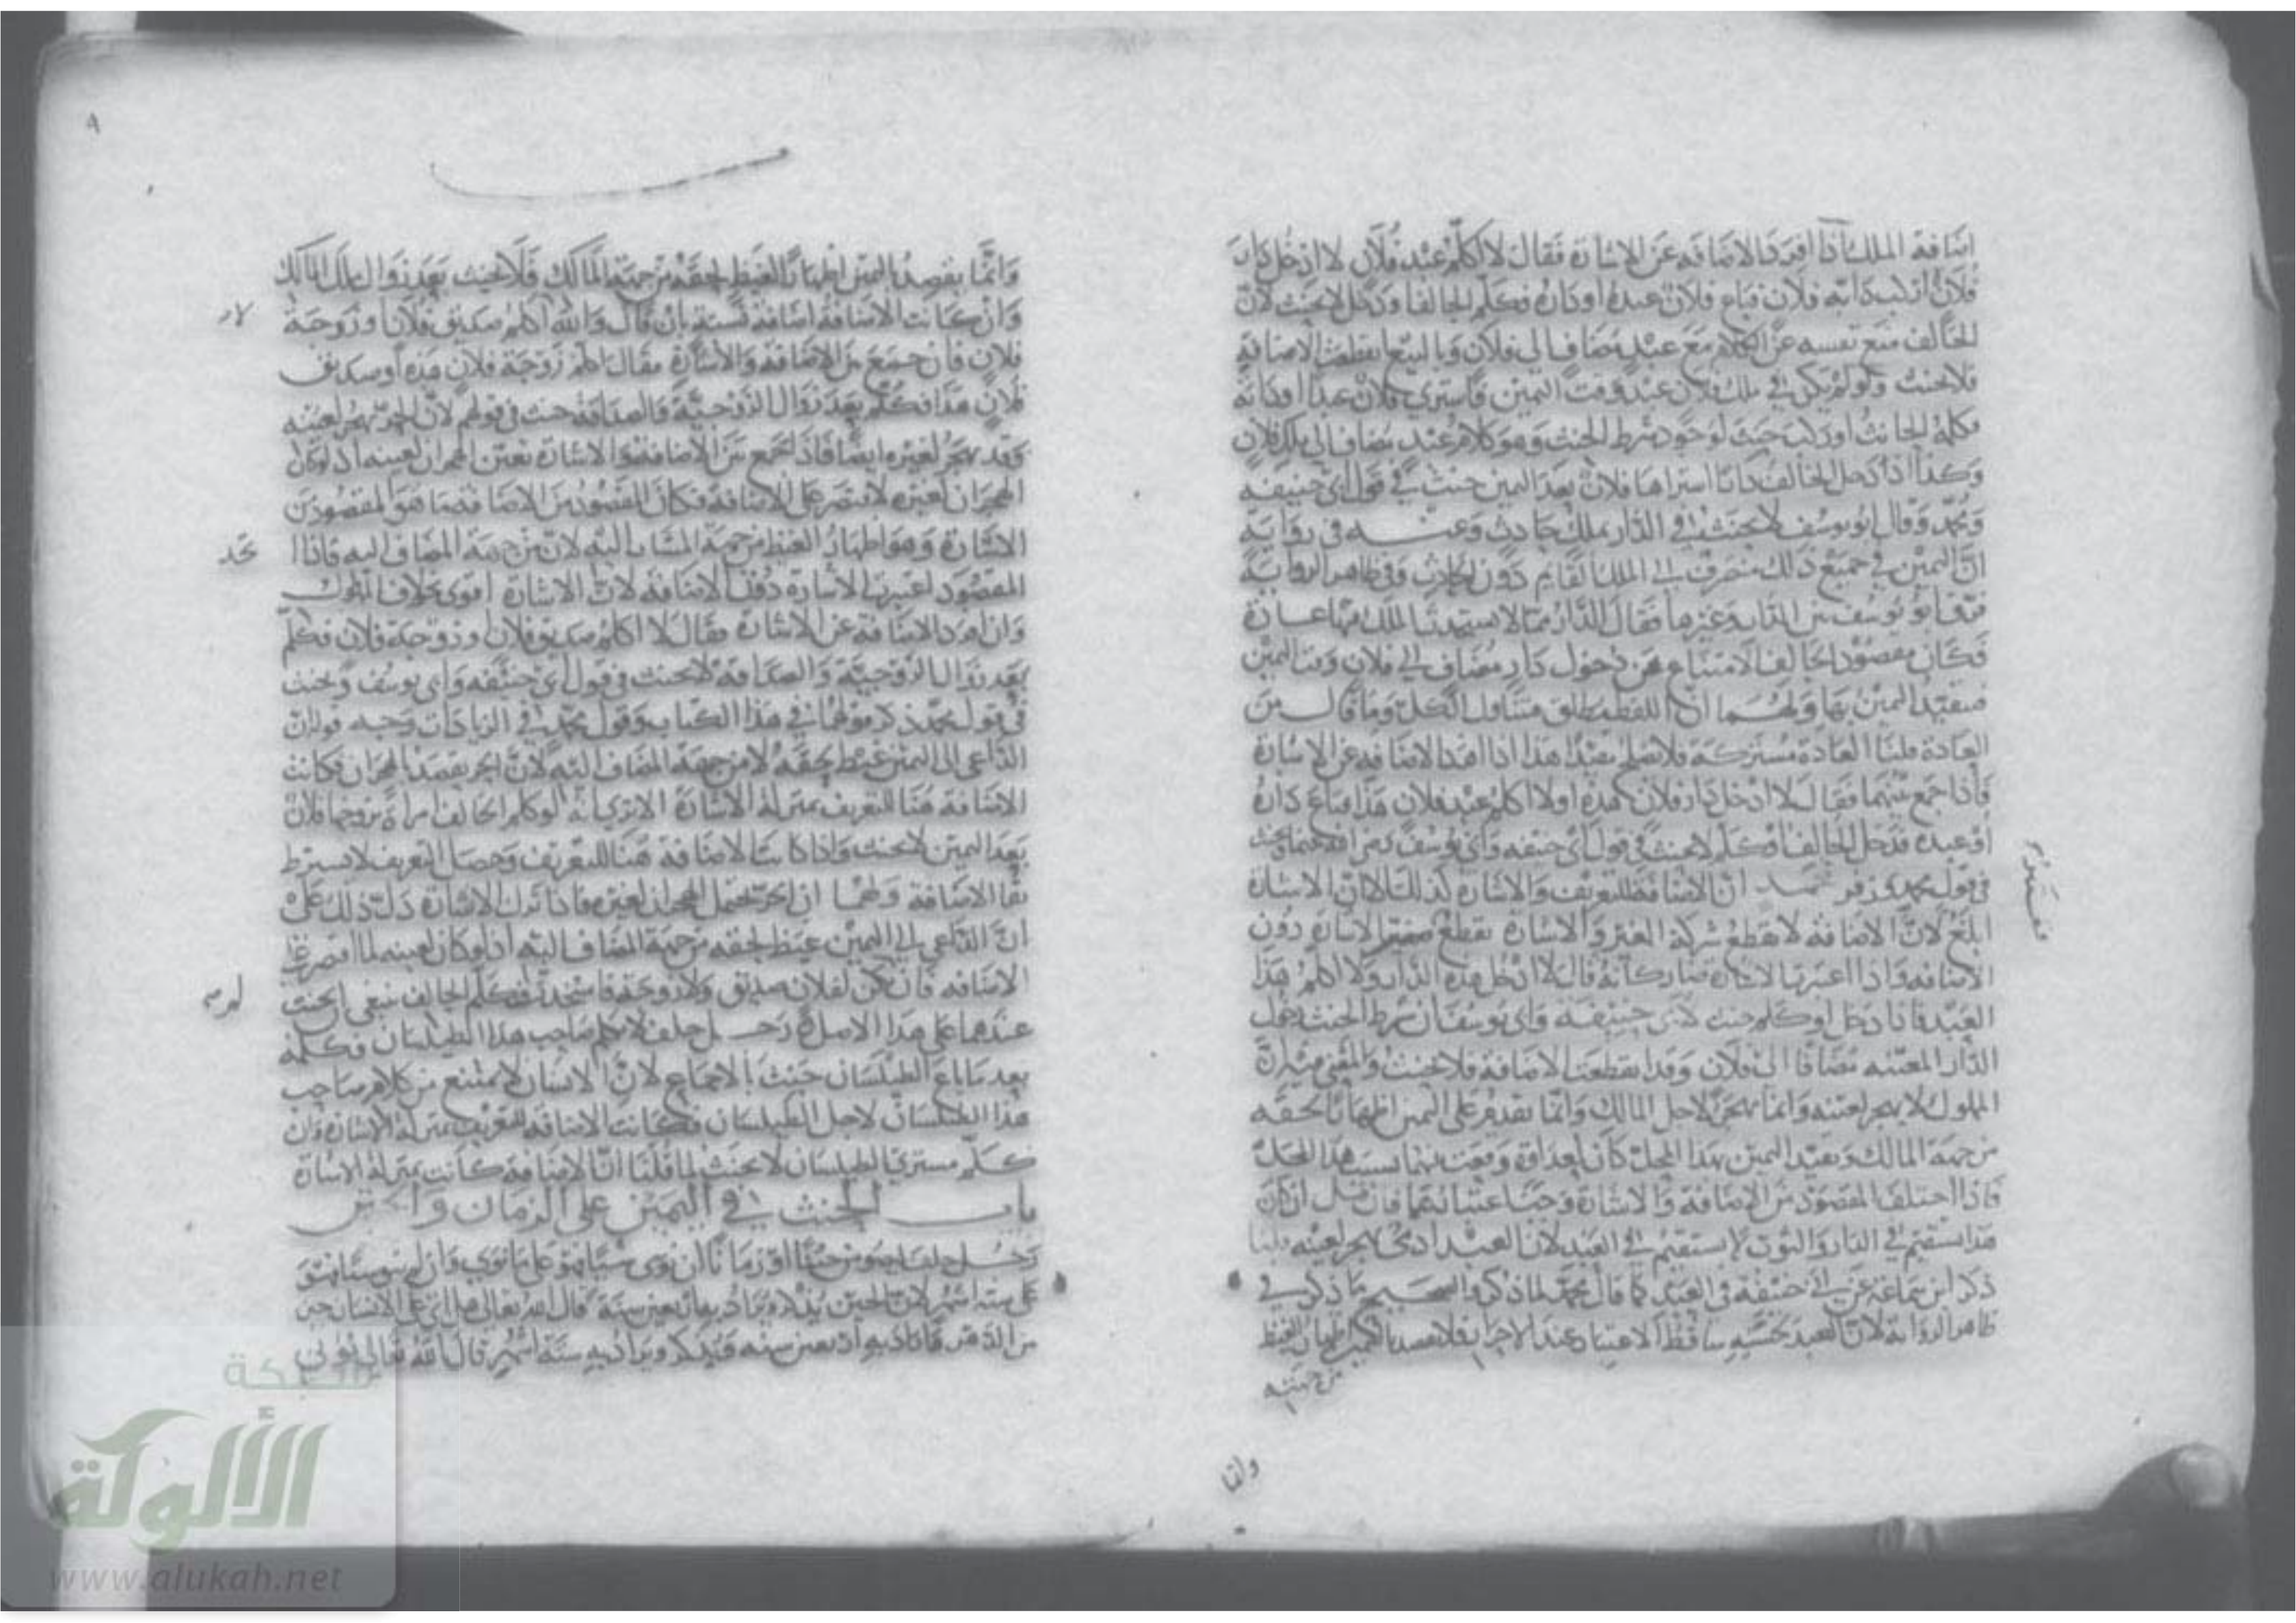 اضافة الملك اذا افرد الاضافة عن الاشارة فقال لا اكلم عبد فلان لا ادخل دار
فلان لا اركب دابة فلان فباع فلان عبده او داره فكلم الحالف او دخل لا يحنث لان
الحالف منع نفسه عن الكلام مع عبد مضاف الى فلان وبالبيع انقطعت الاضافة
فلا يحنث ولو لم يكن في ملك فلان عبد وقت اليمين فاشترى فلان عبدا او دابة
فكلمه الحالف او ركب حنث لوجود شرط الحنث وهو كلام عبد مضاف الى ملك فلان
وكذا اذا دخل الحالف دارا اشتراها فلان بعد اليمين حنث في قول ابي حنيفة
ومحمد وقال ابو يوسف لا يحنث في الدار بملك حادث وعنه في رواية
ان اليمين في جميع ذلك تنصرف الى الملك القائم دون الحادث وفي ظاهر الرواية
فرق ابو يوسف بين الدار وغيرها فقال الدار مما لا يستحدث الملك فيها عادة
فكان مقصود الحالف الامتناع عن دخول دار مضاف الى فلان وقت اليمين
فيتقيد اليمين بها ولهما ان اللفظ مطلق متناول الكل وما قال من
العادة قلنا العادة مشتركة فلا تصلح مقيدا هذا اذا افرد الاضافة عن الاشارة
فاذا جمع بينهما فقال لا ادخل دار فلان هذه او لا اكلم عبد فلان هذا فباع داره
او عبده فدخل الحالف او كلم لا يحنث في قول ابي حنيفة وابي يوسف ويحنث
في قول محمد وزفر لمحمد ان الاضافة للتعريف والاشارة كذلك الا ان الاشارة
ابلغ لان الاضافة لا تقطع شركة الغير والاشارة تقطع فتعتبر الاشارة دون
الاضافة واذا اعتبرنا الاشارة صار كانه قال لا ادخل هذه الدار ولا اكلم هذا
العبد فاذا دخل او كلم حنث لابي حنيفة وابي يوسف ان شرط الحنث دخول
الدار المعينة مضافا الى فلان وقد انقطعت الاضافة فلا يحنث والفقه فيه ان
المملوك لا يهجر لعينه وانما يهجر لاجل المالك وانما يقدم على اليمين اظهارا لحقه
من جهة المالك وتقييد اليمين بهذا المحل كان لعداوة وقعت بينهما بسبب هذا المحل
فاذا اختلف المقصود من الاضافة والاشارة وجب اعتبارهما فان قيل ان كان
هذا يستقيم في الدار والثوب لا يستقيم في العبد لان العبد ادمي يهجر لعينه قلنا
ذكر ابن سماعة عن ابي حنيفة في العبد كما قال محمد لما ذكر والصحيح ما ذكر في
ظاهر الرواية لان العبد لخسته ساقط الاعتبار عند الاحرار فلا يقصد بالهجر اظهار الغيظ
من جهته
وانما
وانما يقصد باليمين اظهارا لغيظ لحقه من جهة المالك فلا يحنث بعد زوال ملك المالك
وان كانت الاضافة اضافة نسبة بان قال والله اكلم صديق فلان او زوجة
لا
فلان فان جمع بين الاضافة والاشارة فقال اكلم زوجة فلان هذه او صديق
فلان هذا فكلم بعد زوال الزوجية والصداقة حنث في قولهم لان الحر يهجر لعينه
وقد يهجر لغيره ايضا فاذا جمع بين الاضافة والاشارة تعين الهجران لعينه اذ لو كان
الهجران لغيره لاقتصر على الاضافة فكان المقصود من الاضافة ما هو المقصود من
الاشارة وهو اظهار الغيظ من جهة المشار اليه لا من جهة المضاف اليه فاذا
محمد
المقصود اعتبرنا الاشارة دون الاضافة لان الاشارة اقوى بخلاف المملوك
وان افرد الاضافة عن الاشارة فقال لا اكلم صديق فلان او زوجة فلان فكلم
بعد زوال الزوجية والصداقة لا يحنث في قول ابي حنيفة وابي يوسف ويحنث
في قول محمد ذكر قولهما في هذا الكتاب وقول محمد في الزيادات وجه قوله ان
الداعي الى اليمين غيظ لحقه لا من جهة المضاف اليه لان الحر يقصد بالهجران فكانت
الاضافة هنا للتعريف بمنزلة الاشارة الا ترى انه لو كلم الحالف امراة تزوجها فلان
بعد اليمين لا يحنث واذا كانت الاضافة هنا للتعريف وحصل التعريف لا يشترط
بقا الاضافة ولهما ان الحر يحتمل الهجران لغيره فاذا ترك الاشارة دل ذلك على
ان الداعي الى اليمين غيظ لحقه من جهة المضاف اليه اذ لو كان لعينه لما اقتصر على
الاضافة فان لم يكن لفلان صديق ولا زوجة فاستحدث فكلم الحالف ينبغي ان يحنث
عندهما على هذا الاصل رجل حلف لا يكلم صاحب هذا الطيلسان فكلمه
بعد ما باع الطيلسان حنث بالاجماع لان الانسان لا يمتنع من كلام صاحب
هذا الطيلسان لاجل الطيلسان فكانت الاضافة للتعريف بمنزلة الاشارة وان
كلم مشتري الطيلسان لا يحنث لما قلنا ان الاضافة كانت بمنزلة الاشارة
باب الحنث في اليمين على الزمان
رجل حلف ليصومن حينا او زمانا ان نوى شيئا فهو على ما نوى وان لم ينو شيئا فهو
على ستة اشهر لان الحين يذكر ويراد به اربعين سنة قال الله تعالى هل اتى على الانسان حين
من الدهر فانما اريد به اربعين سنة ويذكر ويراد به ستة اشهر قال الله تعالى تؤتي
شبكة
الألوكة
www.alukah.net